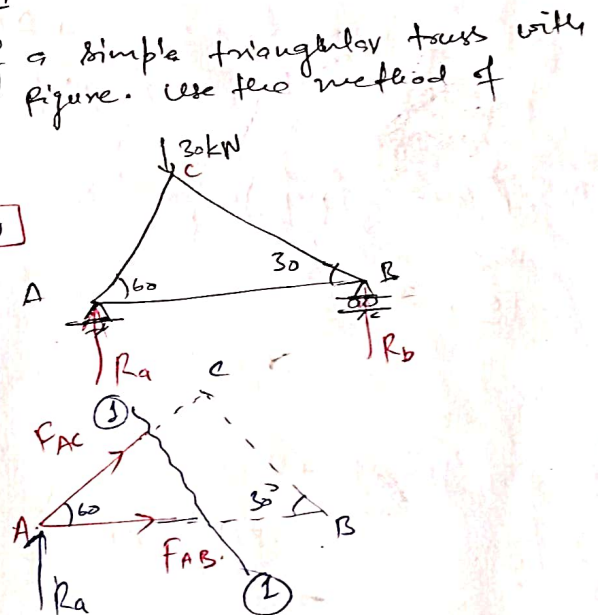 a simple triangular truss with
figure. Use the method of
30kN
C
60
30
B
A
Ra
Rb
C
1
FAC
A
60
30°
B
FAB.
1
Ra